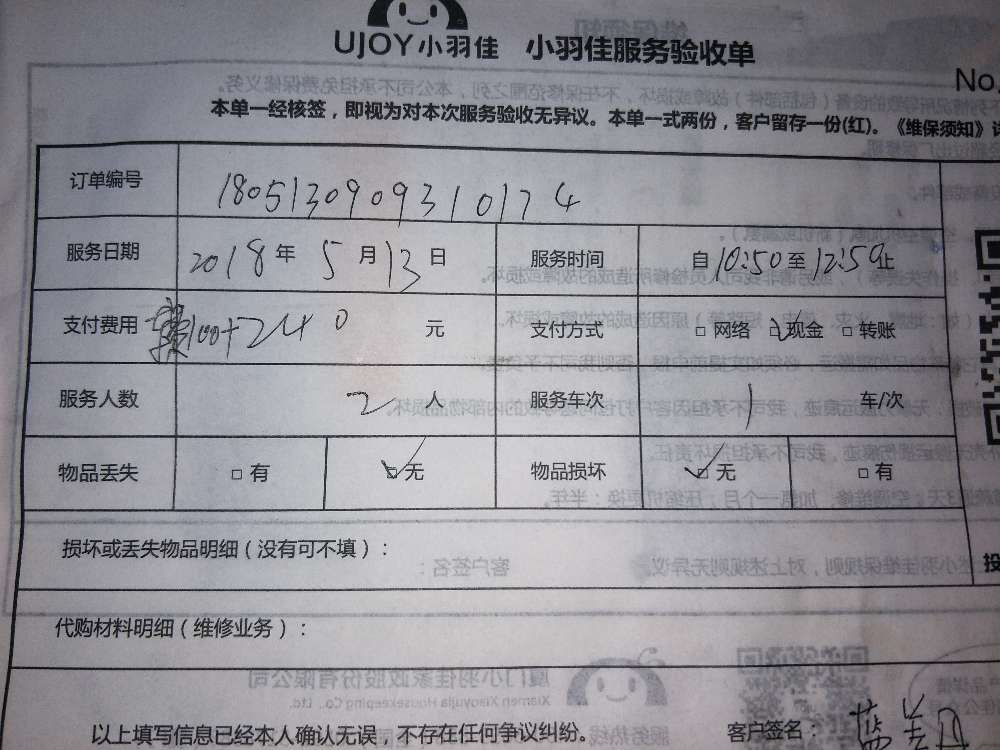 UJOY小羽佳 小羽佳服务验收单
No.
本单一经核签，即视为对本次服务验收无异议。本单一式两份，客户留存一份(红)。《维保须知》详
订单编号 1805130909310174
服务日期 2018年 5月13日 服务时间 自10:50至12:50止
支付费用 100+240 元 支付方式 □ 网络 ☑ 现金 □ 转账
服务人数 2 人 服务车次 1 车/次
物品丢失 □ 有 ☑ 无 物品损坏 ☑ 无 □ 有
损坏或丢失物品明细（没有可不填）：
投
代购材料明细（维修业务）：
以上填写信息已经本人确认无误，不存在任何争议纠纷。 客户签名：